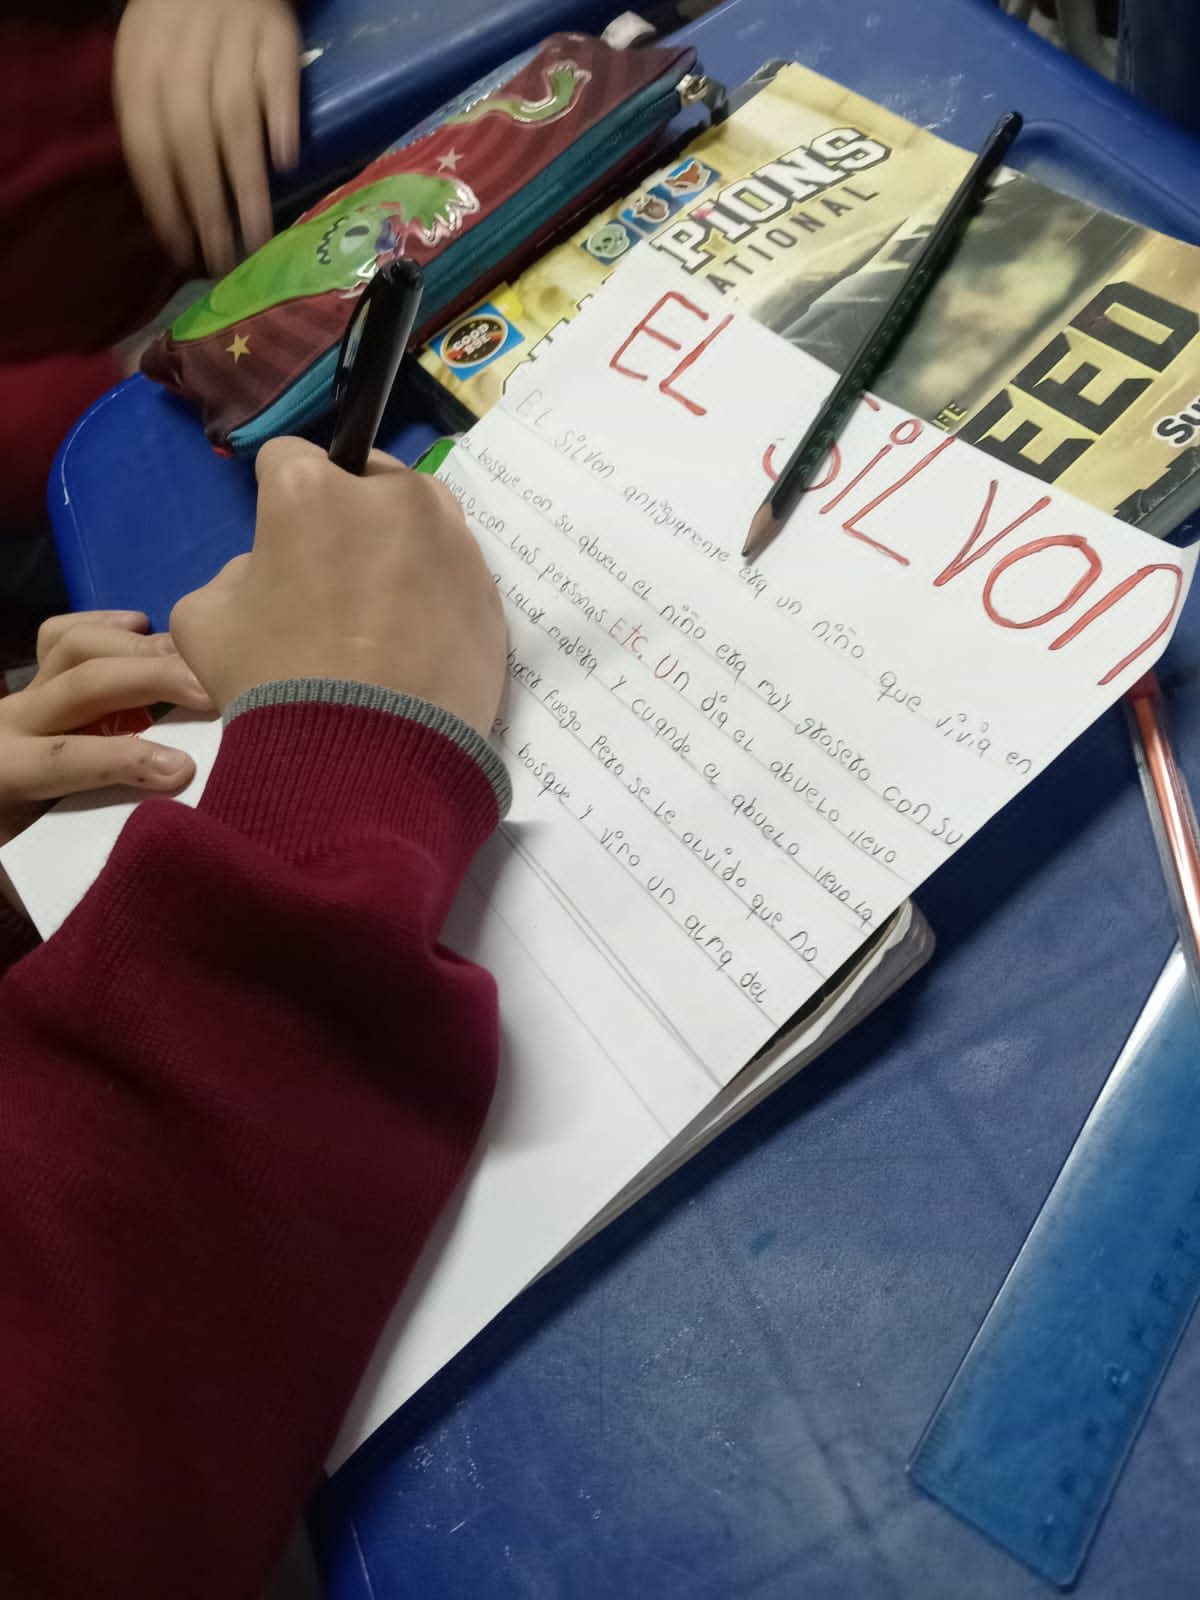 PIONS
ATIONAL
GOOD
EED
Su
EL SiLVOn
EL SiLVOn antiguamente era un niño que vivia en
el bosque con su abuelo el niño era muy grosero con su
abuelo, con las personas ETC. Un dia el abuelo llevo
a talar madera y cuando el abuelo llevo la
hacer fuego pero se le olvido que no
el bosque y vino un alma del